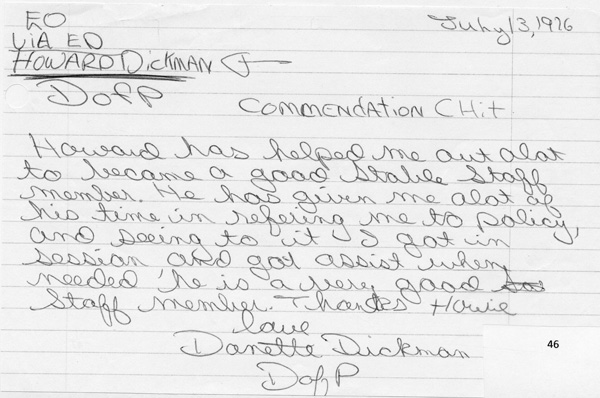 EO July 13, 1976
VIA ED
HOWARD DICKMAN
D of P
COMMENDATION CHIT
Howard has helped me out alot
to became a good stable staff
member. He has given me alot of
his time in refering me to policy,
and seeing to it I got in
session and got assist when
needed he is a very good
staff member. Thanks Howie
love
Danette Dickman
D of P
46